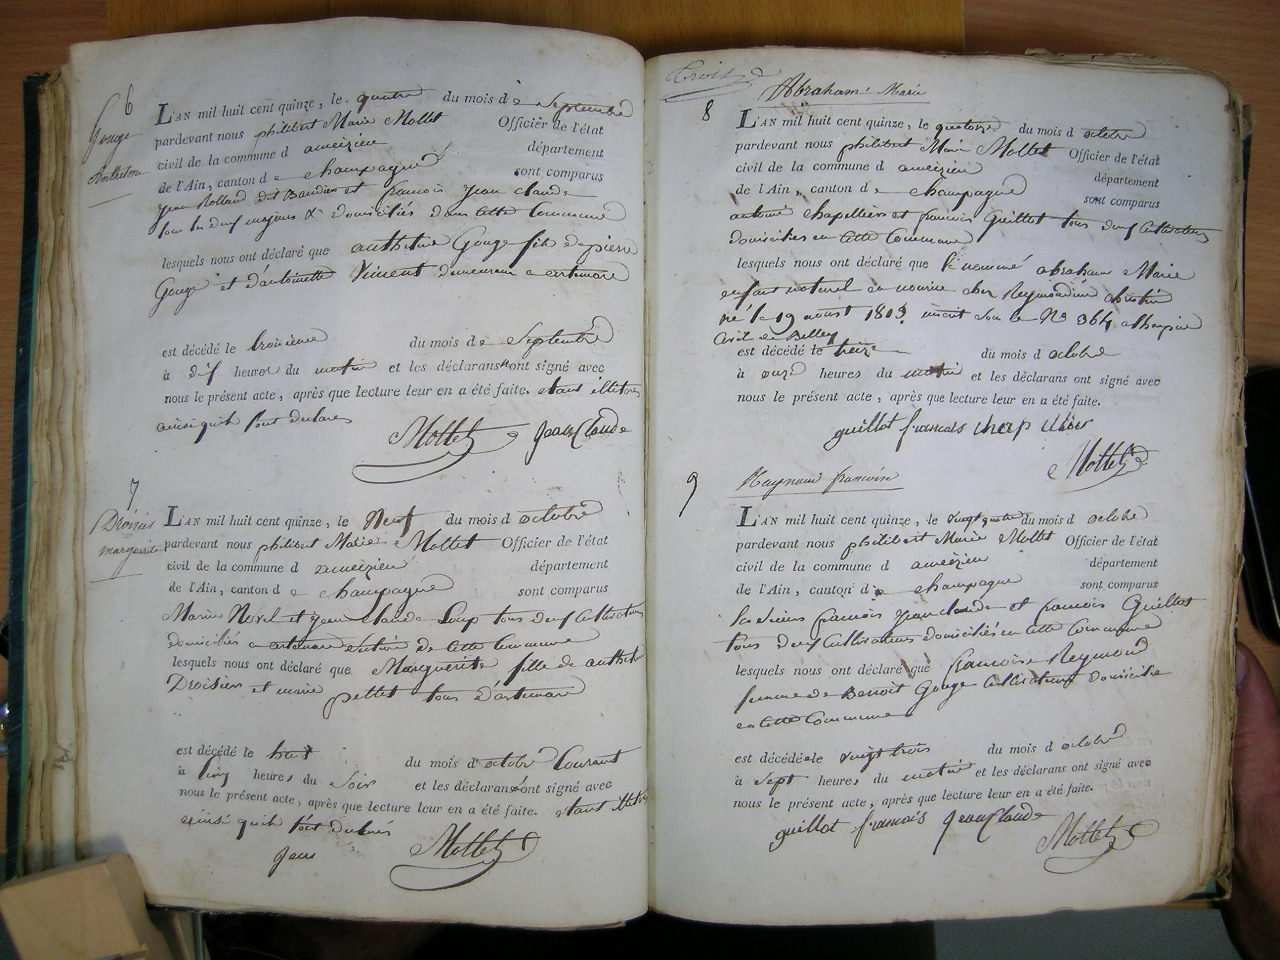 6
Gouge
L'AN mil huit cent quinze, le quatre du mois de Septembre
pardevant nous philibert Marie Mollet Officier de l'état
civil de la commune d ameizieu département
de l'Ain, canton de Champagne sont comparus
Jean Rolland dit Baudin et francois Jean claude
tous les deux majeurs & domiciliés dans cette Commune
lesquels nous ont déclaré que anthelme Gouge fils de pierre
Gouge et d'antoinette Vincent demeurant a artemare
est décédé le troisieme du mois de Septembre
à dix heures du matin et les déclarans ont signé avec
nous le présent acte, après que lecture leur en a été faite. etant illetrés
ainsi qu'ils l'ont declaré
Mollet Jean Claude
7
Droisier
marguerite
L'AN mil huit cent quinze, le Neuf du mois d octobre
pardevant nous philibert Marie Mollet Officier de l'état
civil de la commune d ameizieu département
de l'Ain, canton de Champagne sont comparus
Marin Novel et Jean claude Loup tous deux Cultivateurs
domiciliés a artemare section de cette Commune
lesquels nous ont déclaré que Marguerite fille de anthelme
Droisier et marie pellet tous d'artemare
est décédé le huit du mois d'octobre Courant
à Cinq heures du Soir et les déclarans ont signé avec
nous le présent acte, après que lecture leur en a été faite. etant illetrés
ainsi qu'ils l'ont declaré
Mollet
Trois
8
Abraham Marie
L'AN mil huit cent quinze, le quatorze du mois d octobre
pardevant nous philibert Marie Mollet Officier de l'état
civil de la commune d ameizieu
département
de l'Ain, canton de Champagne
sont comparus
antoine chapellier et francois Guillot tous deux Cultivateurs
domiciliés en cette Commune
lesquels nous ont déclaré que le nommé abraham Marie
enfant naturel en nourrice chez
né le 19 aoust 1813. inscrit sous le No 364 a l'hospice
Civil de Belley
est décédé le treize du mois d octobre
à onze heures du matin et les déclarans ont signé avec
nous le présent acte, après que lecture leur en a été faite.
guillot francois chapellier
Mollet
9
Raymond francoise
L'AN mil huit cent quinze, le vingt quatre du mois d octobre
pardevant nous philibert Marie Mollet Officier de l'état
civil de la commune d ameizieu département
de l'Ain, canton de Champagne sont comparus
Les Sieurs francois Jean claude et francois Guillot
tous deux Cultivateurs domiciliés en cette Commune
lesquels nous ont déclaré que francoise Reymond
femme de Benoit Gouge Cultivateur domicilié
en cette Commune
est décédée le vingt trois du mois d octobre
à Sept heures du matin et les déclarans ont signé avec
nous le présent acte, après que lecture leur en a été faite.
guillot francois Jean Claude
Mollet